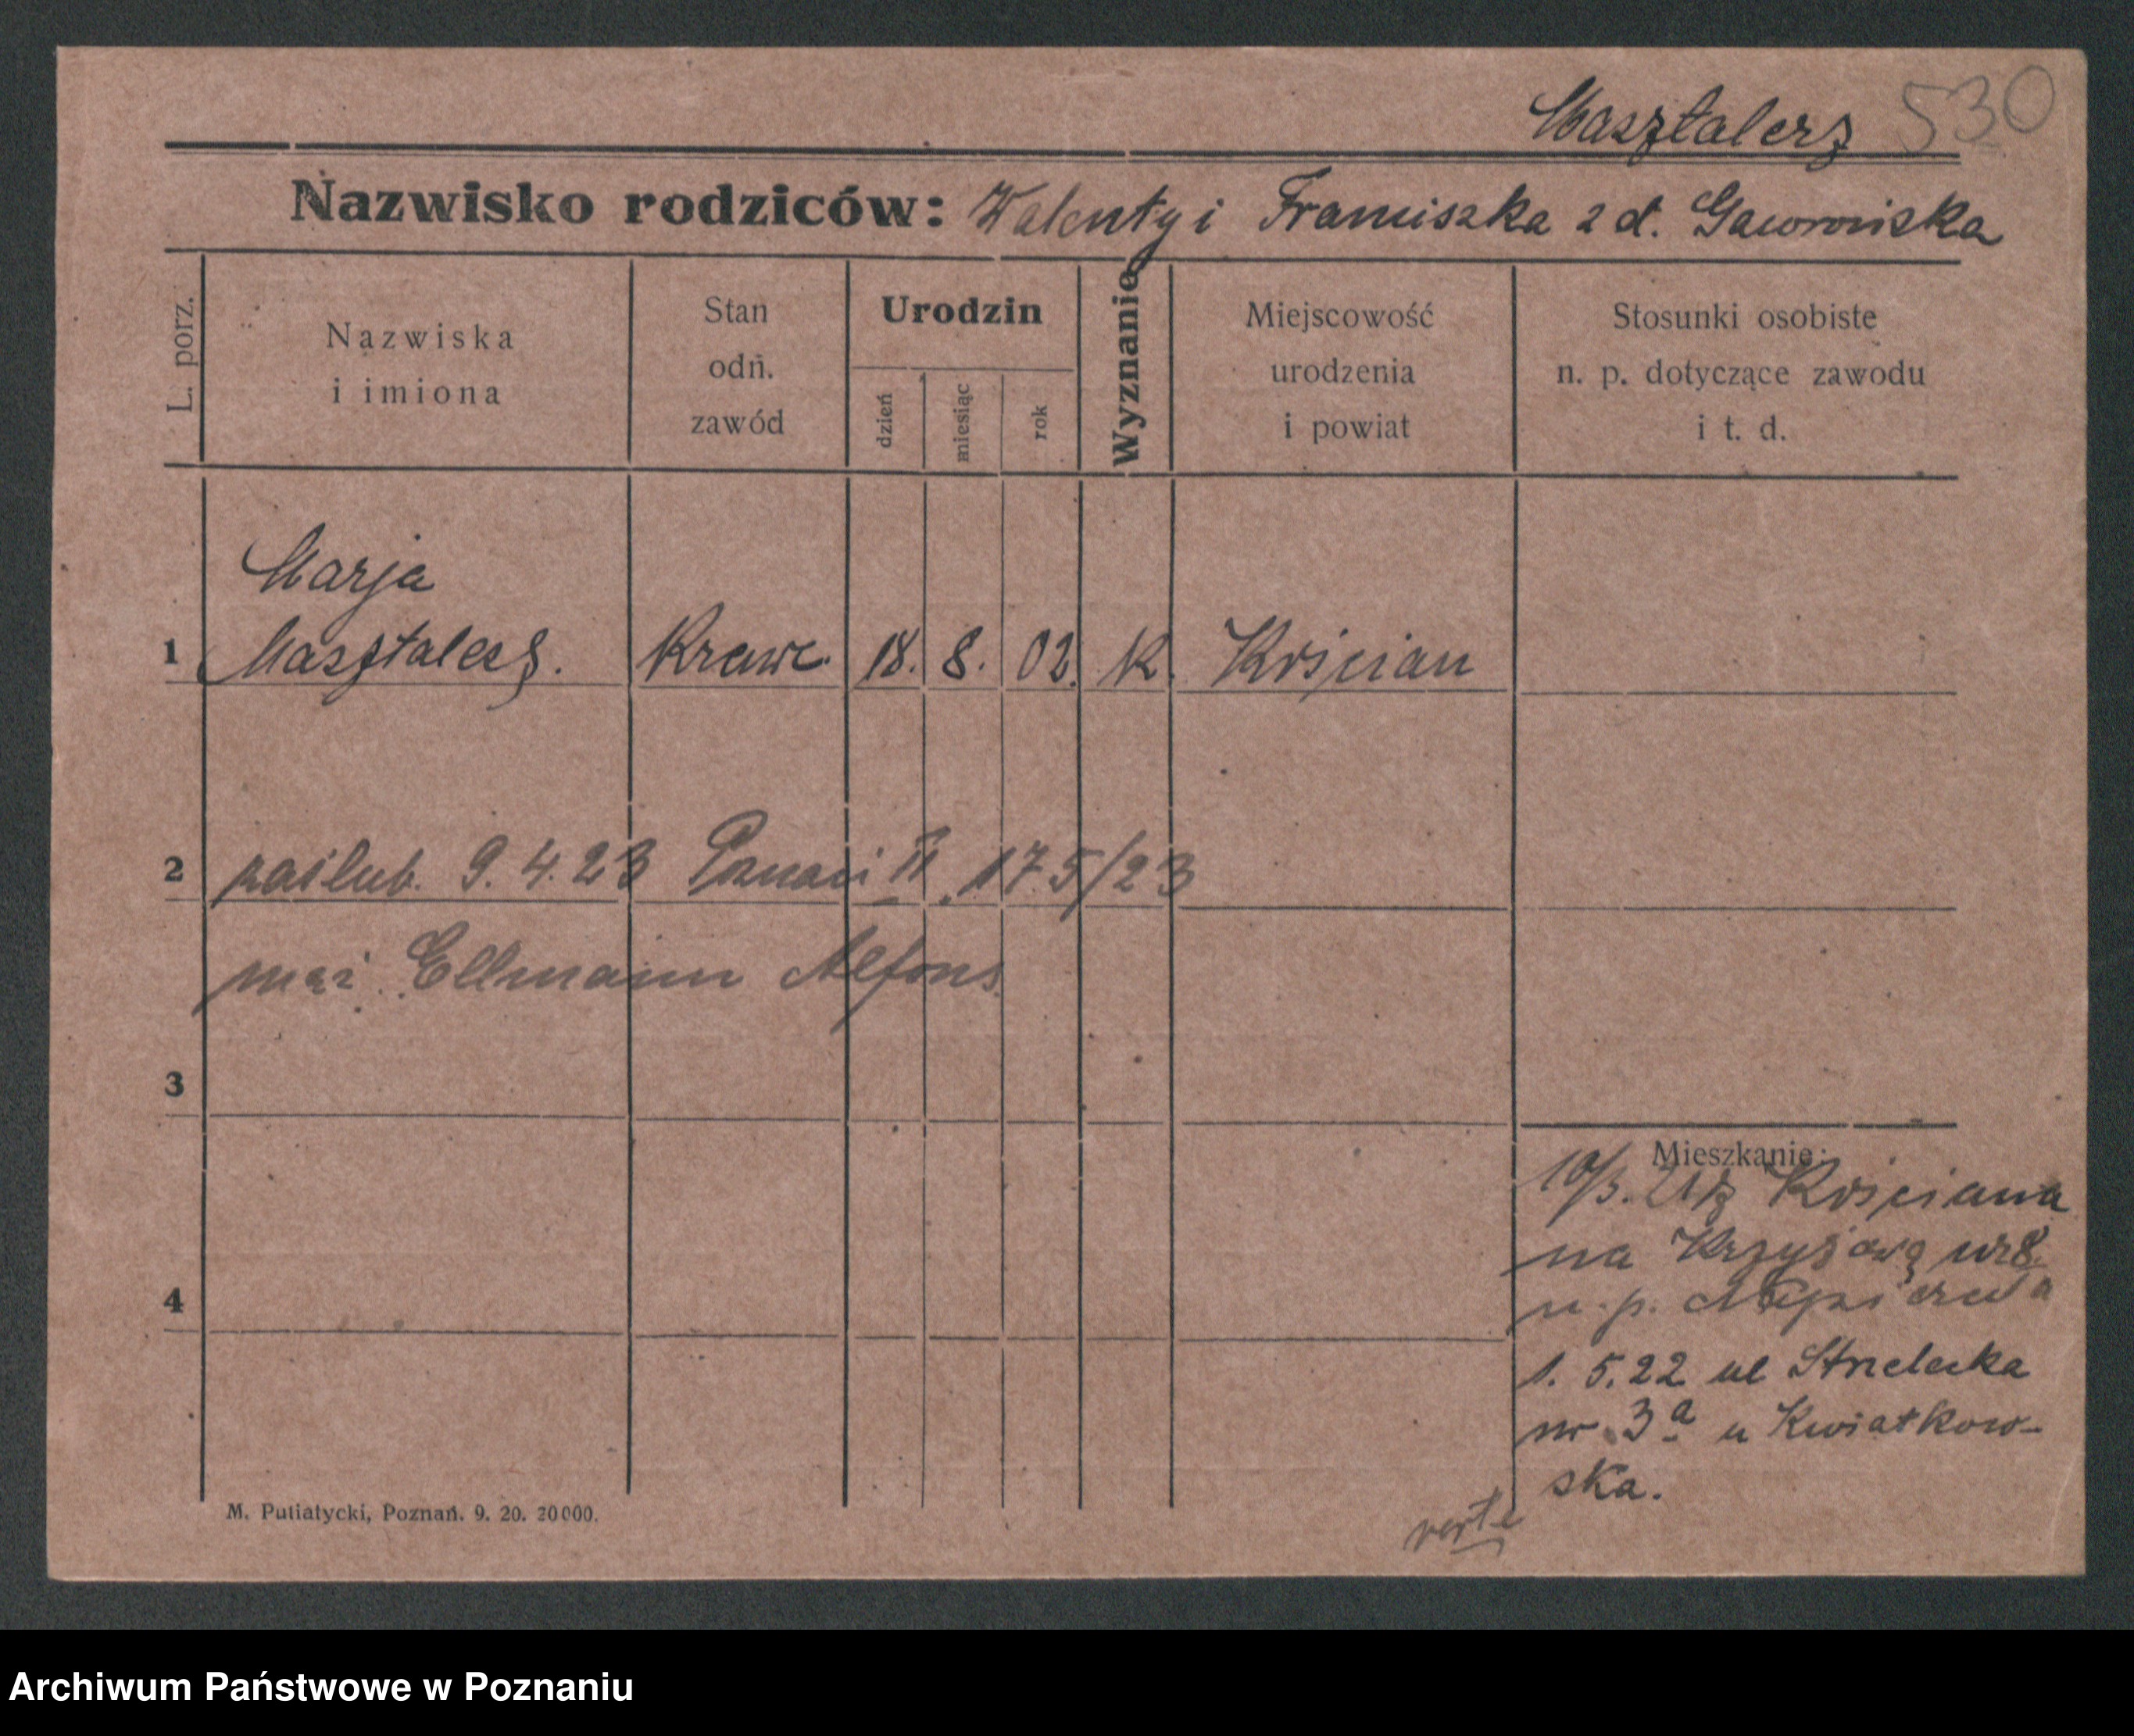 Masztalerz 530
Nazwisko rodziców: Walenty i Franciszka z d. Gaworońska
L. porz.
Nazwiska
i imiona
Stan
odn.
zawód
Urodzin
dzień
miesiąc
rok
Wyznanie
Miejscowość
urodzenia
i powiat
Stosunki osobiste
n. p. dotyczące zawodu
i t. d.
Marja
1 Masztalerz. Krawc. 18. 8. 02. K. Kościan
2 zaślub. 9.4.23 Poznań II 175/23
mąż Ellmann Alfons
3
Mieszkanie:
10/3. Kościana
na Krzyżową nr 8.
4
u. p.
1. 5.22 ul Strzelecka
nr 3a u Kwiatkow-
ska.
verte
M. Putiatycki, Poznań. 9. 20. 20000.
Archiwum Państwowe w Poznaniu